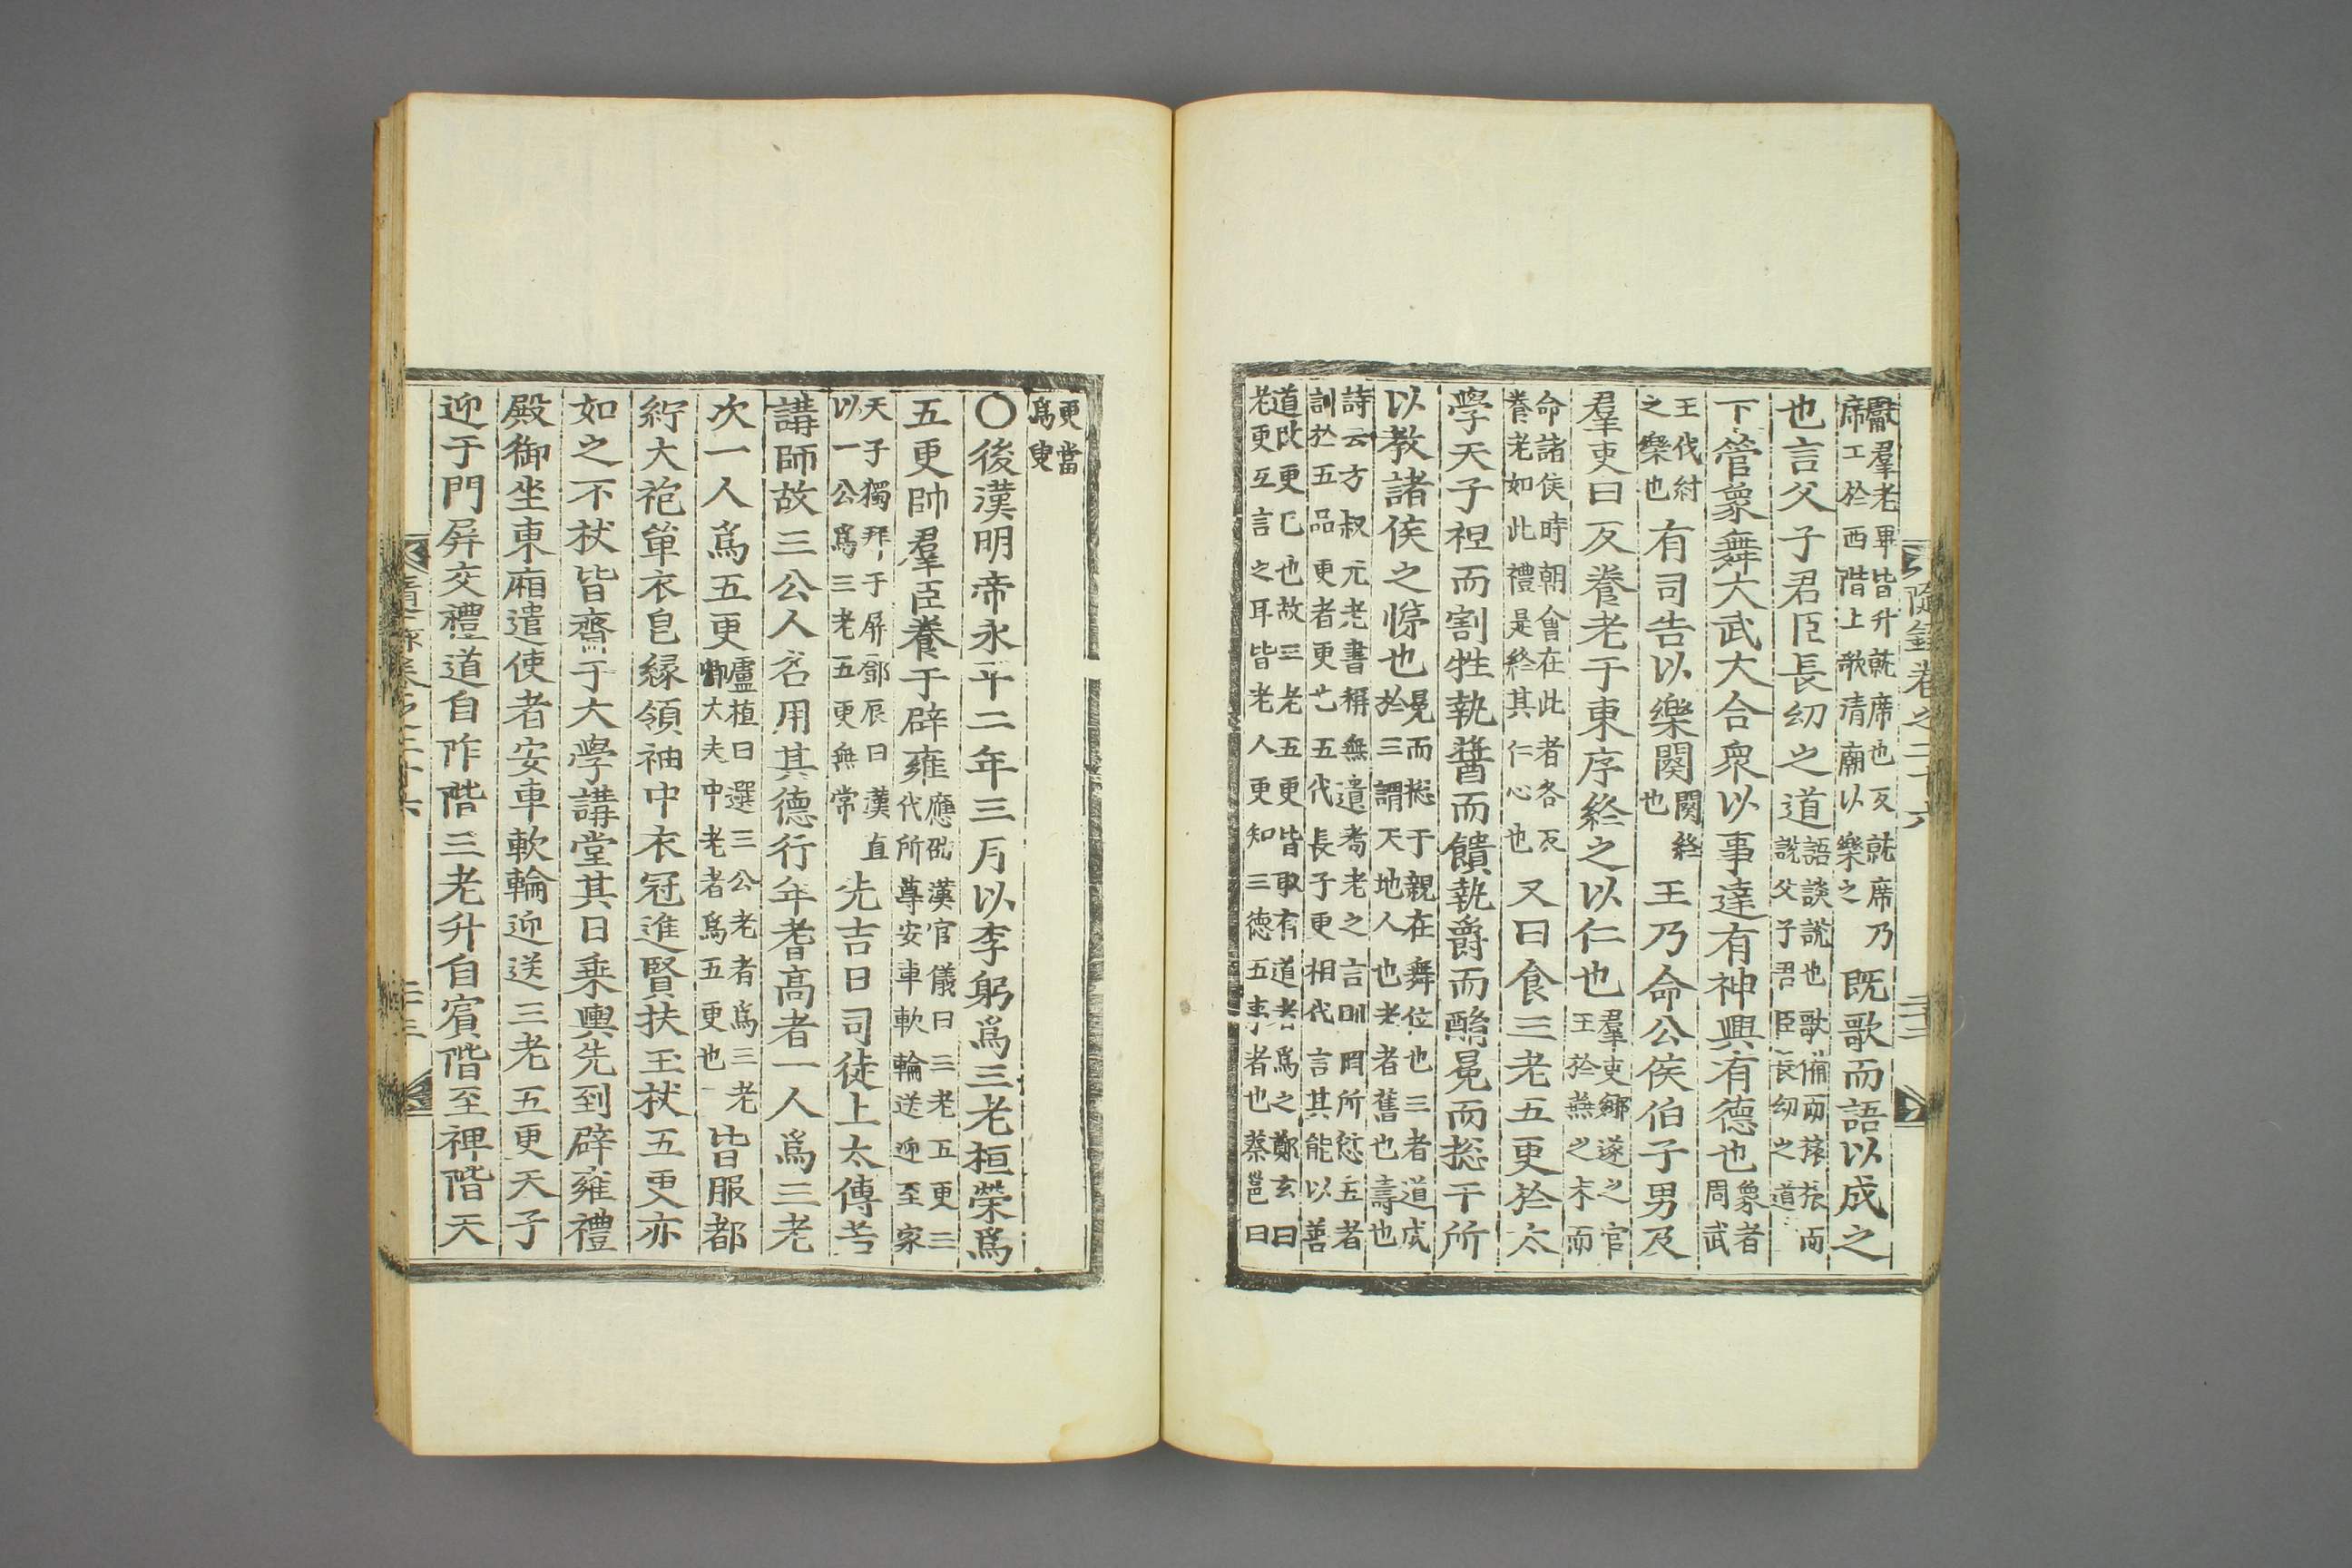 隨錄卷之二十六 二十二
獻羣老畢皆升就席也反就席乃席工於西階上歌清廟以樂之既歌而語以成之
也言父子君臣長幼之道語談說也歌備而旅旅而說父子君臣長幼之道
下管象舞大武大合衆以事達有神興有德也象者周武
王伐紂之樂也有司告以樂闋闋終也王乃命公侯伯子男及
羣吏曰反養老于東序終之以仁也羣吏鄉遂之官王於燕之末而
命諸侯時朝會在此者各反養老如此禮是終其仁心也又曰食三老五更於太
學天子袒而割牲執醬而饋執爵而酳冕而揔干所
以教諸侯之悌也冕而揔干親在舞位也三者道成於三謂天地人也老者舊也壽也
詩云方叔元老書稱無遺耇老之言明罔所愆五者訓於五品更者更也五代長子更相代言其能以善
道改更已也故三老五更皆取有道者爲之鄭玄曰老更互言之耳皆老人更知三德五事者也蔡邕曰
更當爲叟
〇後漢明帝永平二年三月以李躬爲三老桓榮爲
五更帥羣臣養于辟雍應劭漢官儀曰三老五更三代所尊安車軟輪送迎至家
天子獨拜于屏鄧展曰漢直以一公爲三老五更無常先吉日司徒上太傅若
講師故三公人名用其德行年耆高者一人爲三老
次一人爲五更盧植曰選三公老者爲三老卿大夫中老者爲五更也皆服都
紵大袍單衣皂緣領袖中衣冠進賢扶玉杖五更亦
如之不杖皆齋于大學講堂其日乘輿先到辟雍禮
殿御坐東廂遣使者安車軟輪迎送三老五更天子
迎于門屛交禮道自阼階三老升自賓階至裨階天
隨錄卷之二十六 二十三